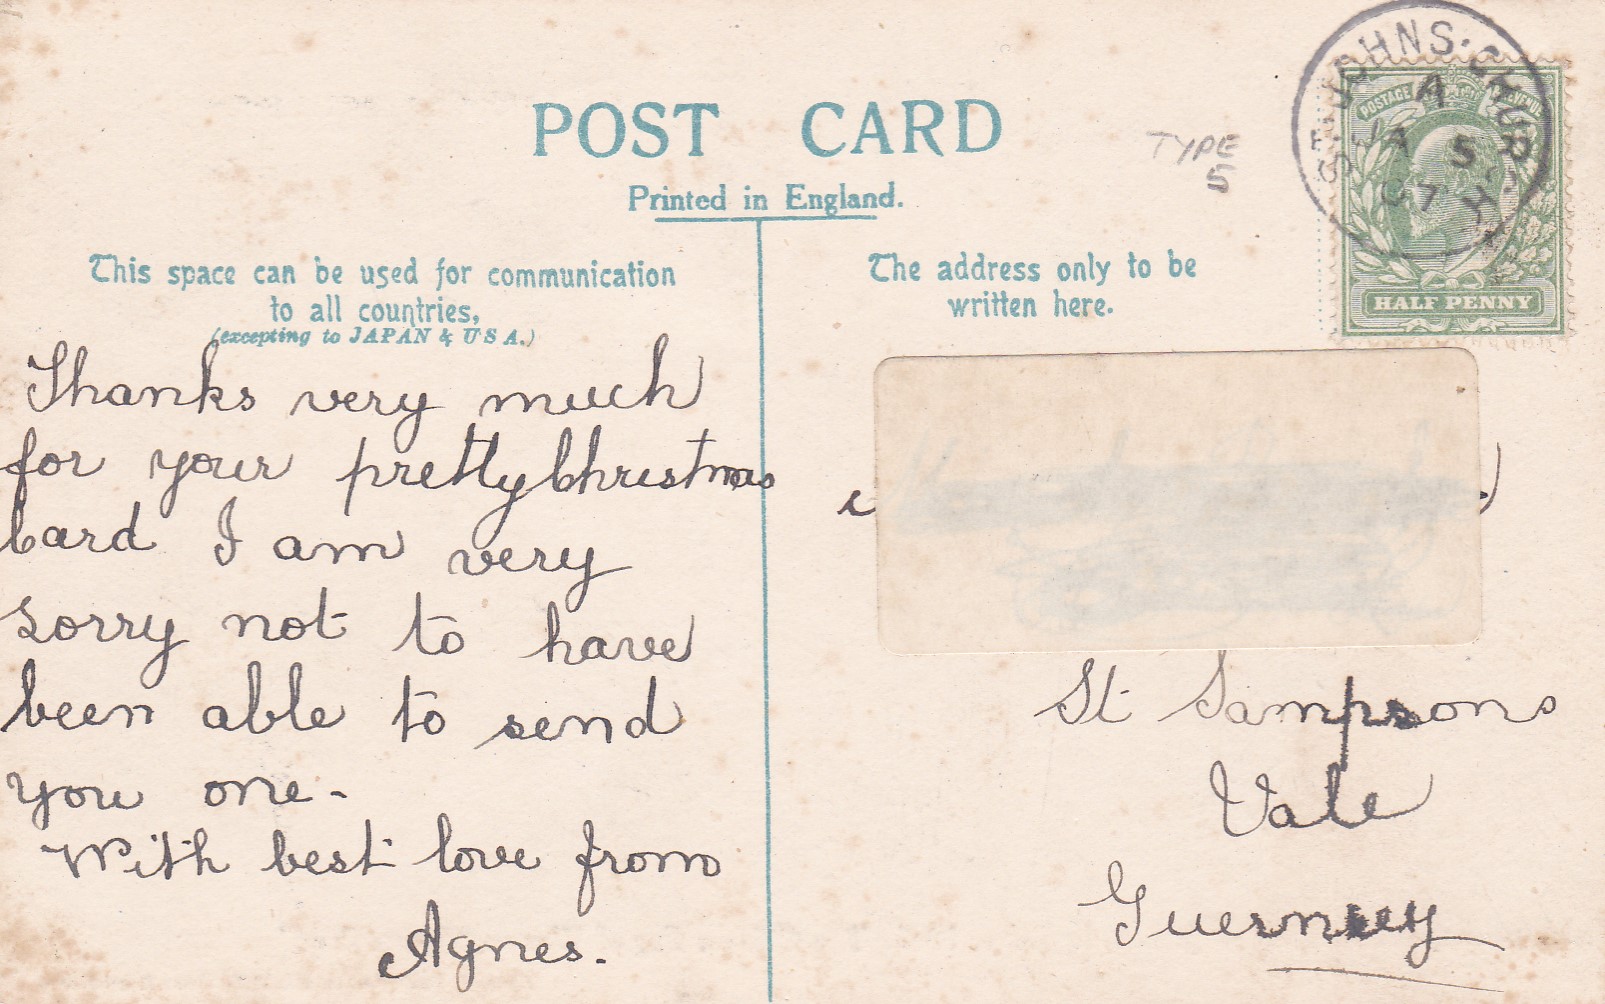 POST CARD
Printed in England.
This space can be used for communication
to all countries,
(excepting to JAPAN & U S A.)
The address only to be
written here.
TYPE
5
ST. JOHNS. CHURCH
A
JA 5
07
POSTAGE REVENUE
HALF PENNY
Thanks very much
for your pretty Christmas
Card I am very
sorry not to have
been able to send
you one-
With best love from
Agnes.
St Sampsons
Vale
Guernsey